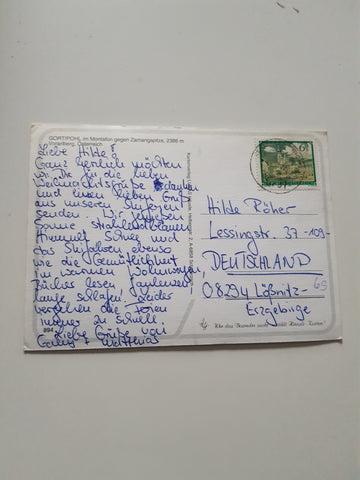 GORTIPOHL im Montafon gegen Zamangspitze, 2386 m
Vorarlberg, Österreich
Liebe Hilde!
Ganz herzlich möchten
wir Dir für die lieben
Weihnachtsgrüße danken
und einen lieben Gruß
aus unseren Skiferien
senden. Wir genießen
Sonne strahlendblauen
Himmel Schnee und
das Skifahren ebenso
wie die Gemütlichkeit
im warmen Wohnwagen,
Bücher lesen faulenzen
lange schlafen, leider
vergehen die Ferien
immer zu schnell.
Liebe Grüße von
Matthias
894
6
Hilde Röher
Lessingstr. 37 -109-
DEUTSCHLAND
08294 Lößnitz-
69
Erzgebirge
Wer das Besondere sucht, wählt Risch-Karten!